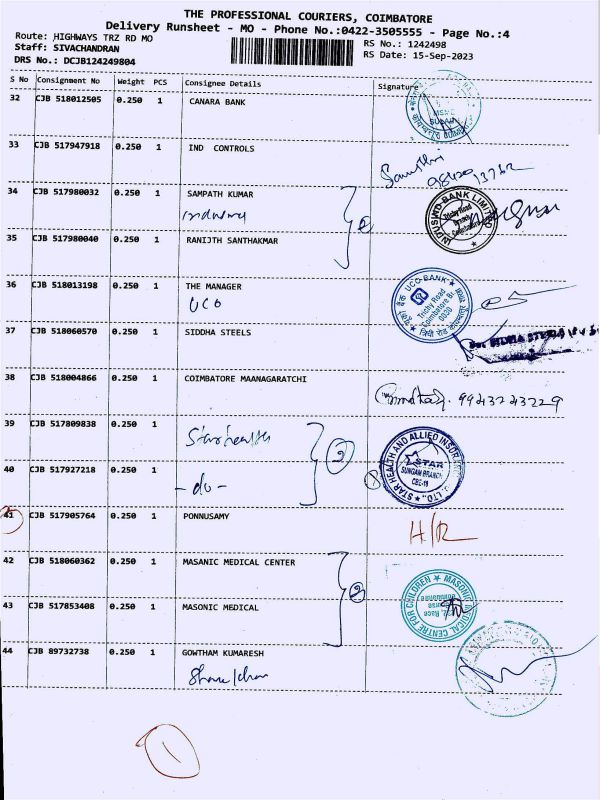 THE PROFESSIONAL COURIERS, COIMBATORE
Delivery Runsheet - MO - Phone No.:0422-3505555 - Page No.:4
Route: HIGHWAYS TRZ RD MO
RS No.: 1242498
Staff: SIVACHANDRAN
RS Date: 15-Sep-2023
DRS No.: DCJB124249804
S No Consignment No Weight PCS Consignee Details Signature
32 CJB 518012505 0.250 1 CANARA BANK
33 CJB 517947918 0.250 1 IND CONTROLS
34 CJB 517980032 0.250 1 SAMPATH KUMAR
INDUSWD-BANK LIMITED
Trichy Road
35 CJB 517980040 0.250 1 RANIJTH SANTHAKMAR
36 CJB 518013198 0.250 1 THE MANAGER
UCO
UCO-BANK
Trichy Road
Coimbatore Br.
0030
37 CJB 518060570 0.250 1 SIDDHA STEELS
38 CJB 518004866 0.250 1 COIMBATORE MAANAGARATCHI
9943243229
39 CJB 517809838 0.250 1
Star health
2
STAR HEALTH AND ALLIED INSURANCE
STAR
SUNGAM BRANCH
CBE-18
40 CJB 517927218 0.250 1
- do -
41 CJB 517905764 0.250 1 PONNUSAMY
H/R
42 CJB 518060362 0.250 1 MASANIC MEDICAL CENTER
2
MASONIC MEDICAL CENTRE FOR CHILDREN
43 CJB 517853408 0.250 1 MASONIC MEDICAL
44 CJB 89732738 0.250 1 GOWTHAM KUMARESH
1